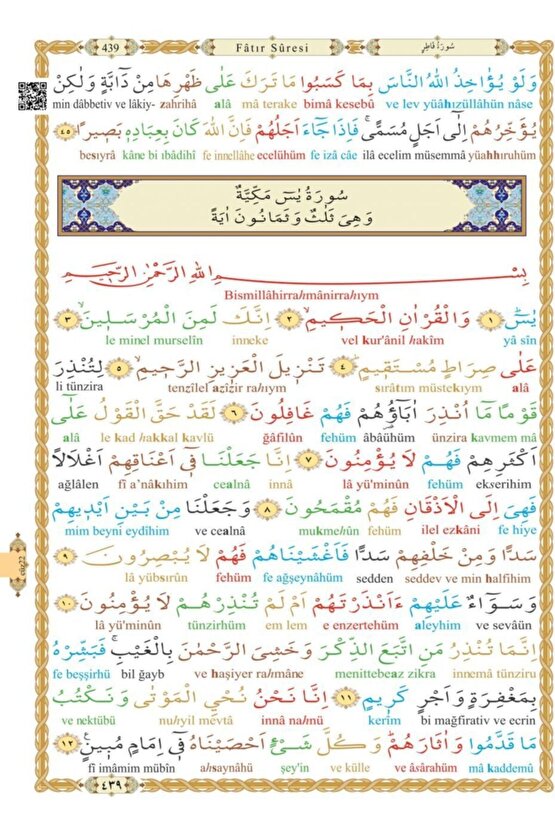 439 Fâtır Sûresi سُورَةُ فَاطِرٍ
وَلَوْ يُؤَاخِذُ اللّٰهُ النَّاسَ بِمَا كَسَبُوا مَا تَرَكَ عَلٰى ظَهْرِهَا مِنْ دَٓابَّةٍ وَلٰكِنْ
min dâbbetiv ve lâkiy- zahrihâ alâ mâ terake bimâ kesebû ve lev yüâhızüllâhün nâse
يُؤَخِّرُهُمْ اِلٰٓى اَجَلٍ مُسَمًّىۚ فَاِذَا جَٓاءَ اَجَلُهُمْ فَاِنَّ اللّٰهَ كَانَ بِعِبَادِهٖ بَصٖيرًا ﴿٤٥﴾
besıyrâ kâne bi ıbâdihî fe innellâhe ecelühüm fe izâ câe ilâ ecelim müsemmâ yüahhıruhüm
سُورَةُ يٰسٓ مَكِّيَّةٌ
وَهِيَ ثَلٰثٌ وَثَمَانُونَ اٰيَةً
بِسْمِ اللّٰهِ الرَّحْمٰنِ الرَّحٖيمِ
Bismillâhirrahmânirrahıym
يٰسٓۚ ﴿١﴾ وَالْقُرْاٰنِ الْحَكٖيمِۙ ﴿٢﴾ اِنَّكَ لَمِنَ الْمُرْسَلٖينَۙ ﴿٣﴾
le minel murselîn inneke vel kur'ânil hakîm yâ sîn
عَلٰى صِرَاطٍ مُسْتَقٖيمٍۜ ﴿٤﴾ تَنْزٖيلَ الْعَزٖيزِ الرَّحٖيمِۙ ﴿٥﴾ لِتُنْذِرَ
li tünzira tenzîlel azîzir rahıym sırâtım müstekıym alâ
قَوْمًا مَٓا اُنْذِرَ اٰبَٓاؤُ۬هُمْ فَهُمْ غَافِلُونَ ﴿٦﴾ لَقَدْ حَقَّ الْقَوْلُ عَلٰٓى
alâ le kad hakkal kavlü ğâfilûn fehüm âbâühüm ünzira kavmem mâ
اَكْثَرِهِمْ فَهُمْ لَا يُؤْمِنُونَ ﴿٧﴾ اِنَّا جَعَلْنَا فٖٓي اَعْنَاقِهِمْ اَغْلَالًا
ağlâlen fî a'nâkıhim cealnâ innâ lâ yü'minûn fehüm ekserihim
فَهِيَ اِلَى الْاَذْقَانِ فَهُمْ مُقْمَحُونَ ﴿٨﴾ وَجَعَلْنَا مِنْ بَيْنِ اَيْدٖيهِمْ
mim beyni eydîhim ve cealnâ mukmehûn fehüm ilel ezkâni fe hiye
سَدًّا وَمِنْ خَلْفِهِمْ سَدًّا فَاَغْشَيْنَاهُمْ فَهُمْ لَا يُبْصِرُونَ ﴿٩﴾
lâ yübsırûn fehüm fe ağşeynâhüm sedden seddev ve min halfihim
وَسَوَٓاءٌ عَلَيْهِمْ ءَاَنْذَرْتَهُمْ اَمْ لَمْ تُنْذِرْهُمْ لَا يُؤْمِنُونَ ﴿١٠﴾
lâ yü'minûn tünzirhüm em lem e enzertehüm aleyhim ve sevâün
اِنَّمَا تُنْذِرُ مَنِ اتَّبَعَ الذِّكْرَ وَخَشِيَ الرَّحْمٰنَ بِالْغَيْبِۚ فَبَشِّرْهُ
fe beşşirhü bil ğayb ve haşiyer rahmâne menittebeaz zikra innemâ tünziru
بِمَغْفِرَةٍ وَاَجْرٍ كَرٖيمٍ ﴿١١﴾ اِنَّا نَحْنُ نُحْيِ الْمَوْتٰى وَنَكْتُبُ
ve nektübü nuhyil mevtâ innâ nahnü kerîm bi mağfirativ ve ecrin
مَا قَدَّمُوا وَاٰثَارَهُمْۜ وَكُلَّ شَيْءٍ اَحْصَيْنَاهُ فٖٓي اِمَامٍ مُبٖينٍ۟ ﴿١٢﴾
fî imâmim mübîn ahsaynâhü şey'in ve külle ve âsârahüm mâ kaddemû
٤٣٩
cüz22